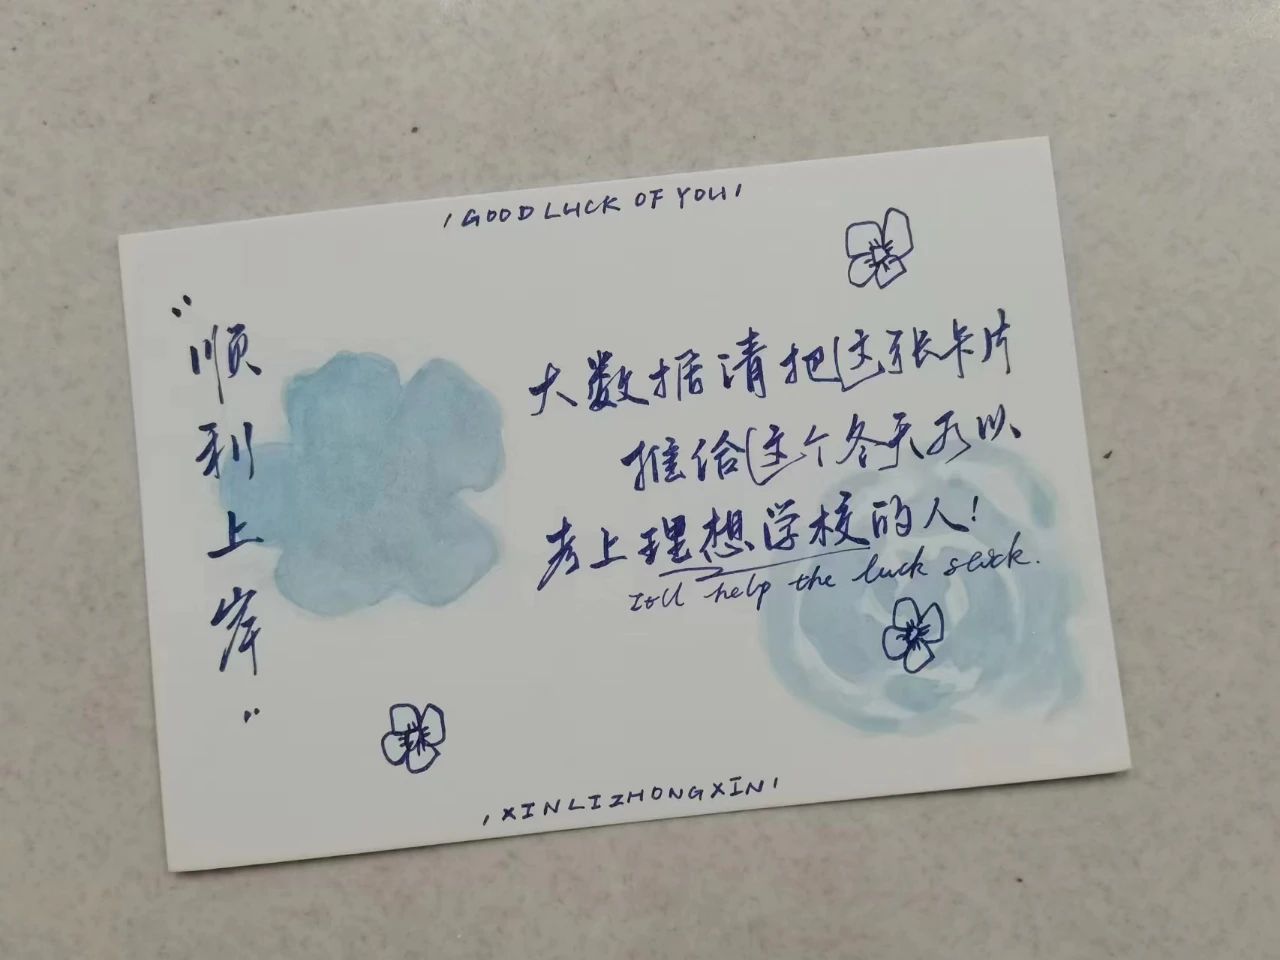 'GOOD LUCK OF YOU'
"顺利上岸"
大数据请把这张卡片
推给这个冬天可以
考上理想学校的人!
It'll help the luck stick.
'XINLIZHONGXIN'